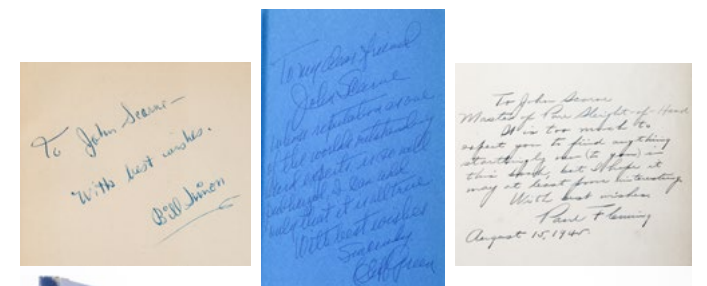 To John Scarne—
With best wishes.
Bill Simon
To my dear friend
John Scarne
whose reputation as one
of the worlds outstanding
card experts is so well
I can
only that it is all true
With best wishes
Sincerely
Cliff Green
To John Scarne
Master of Pure Sleight-of-Hand
It is too much to
expect you to find anything
startlingly new (to you) in
this book, but I hope it
may at least prove interesting.
With best wishes
Paul Fleming
August 15, 1945